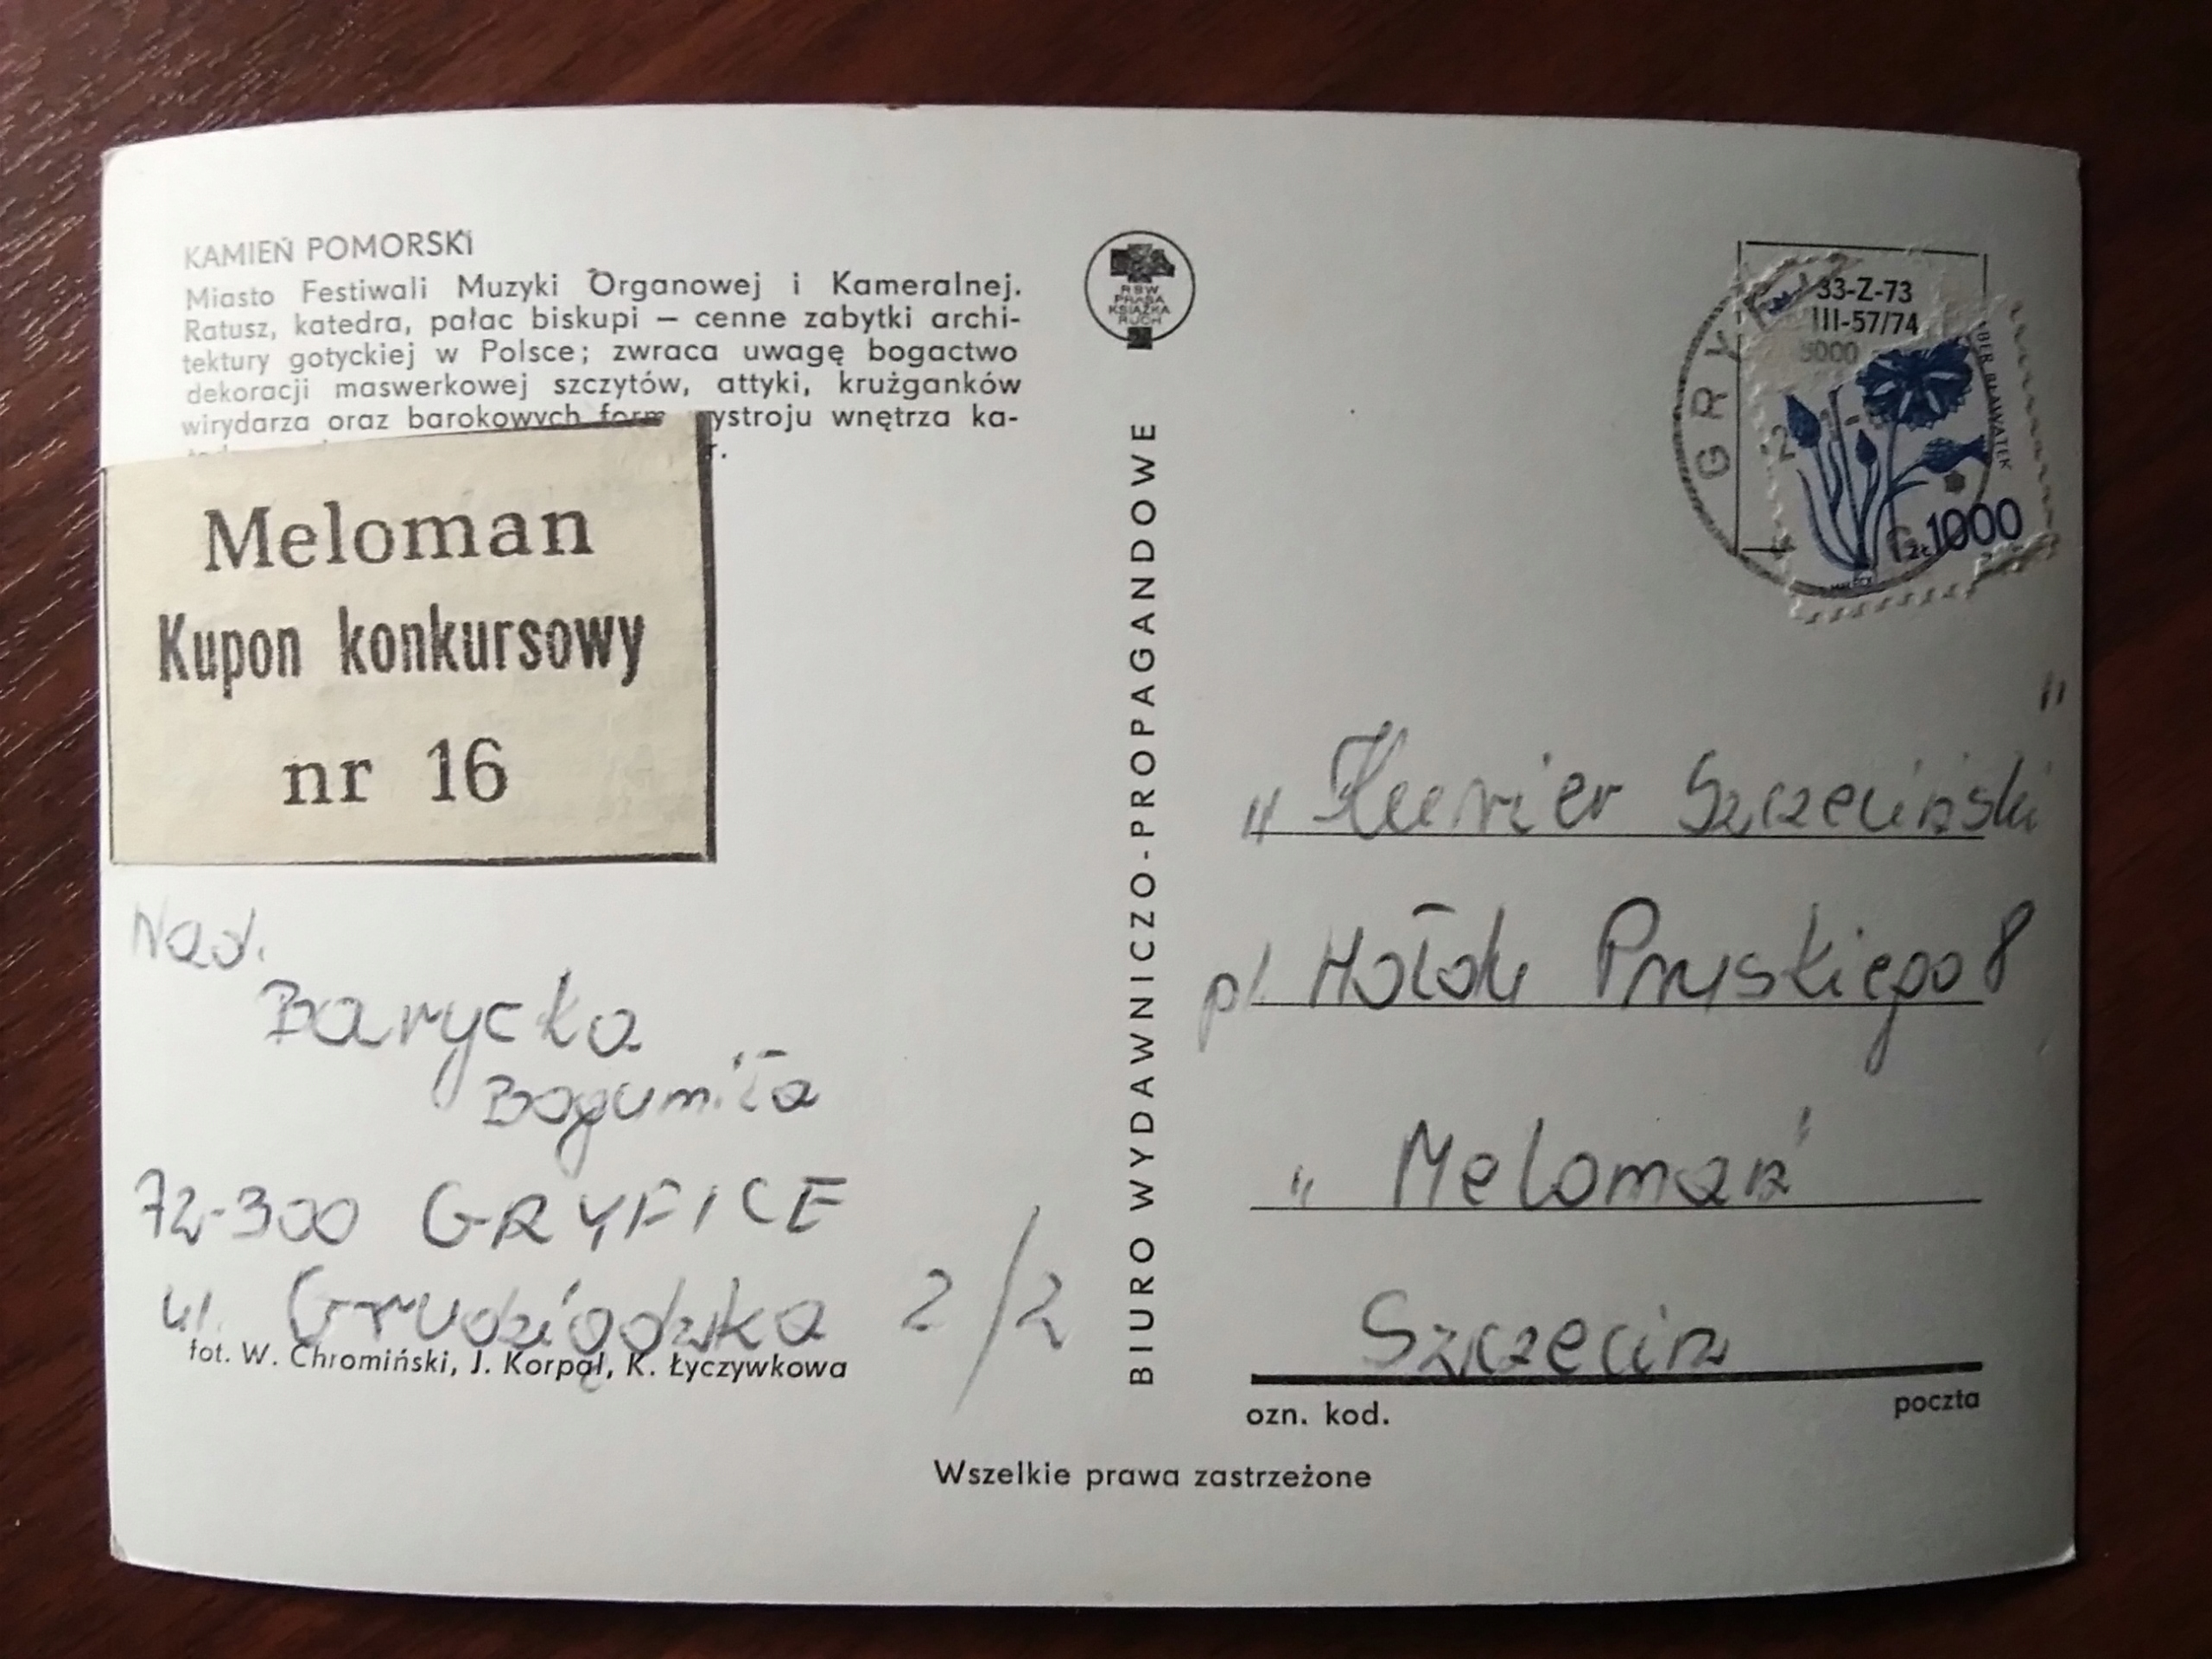 KAMIEŃ POMORSKI
Miasto Festiwali Muzyki Organowej i Kameralnej.
Ratusz, katedra, pałac biskupi — cenne zabytki archi-
tektury gotyckiej w Polsce; zwraca uwagę bogactwo
dekoracji maswerkowej szczytów, attyki, krużganków
wirydarza oraz barokowych form wystroju wnętrza ka-
Meloman
Kupon konkursowy
nr 16
Nad.
Barycka
Bogumiła
72-300 GRYFICE
ul. Grudziądzka 2/2
fot. W. Chromiński, J. Korpal, K. Łyczywkowa
RSW
PRASA
KSIĄŻKA
RUCH
BIURO WYDAWNICZO-PROPAGANDOWE
33-Z-73
III-57/74
GRYF
BŁAWATEK
zł 1000
"Kurier Szczeciński"
pl. Hołdu Pruskiego 8
"Meloman"
Szczecin
ozn. kod.
poczta
Wszelkie prawa zastrzeżone